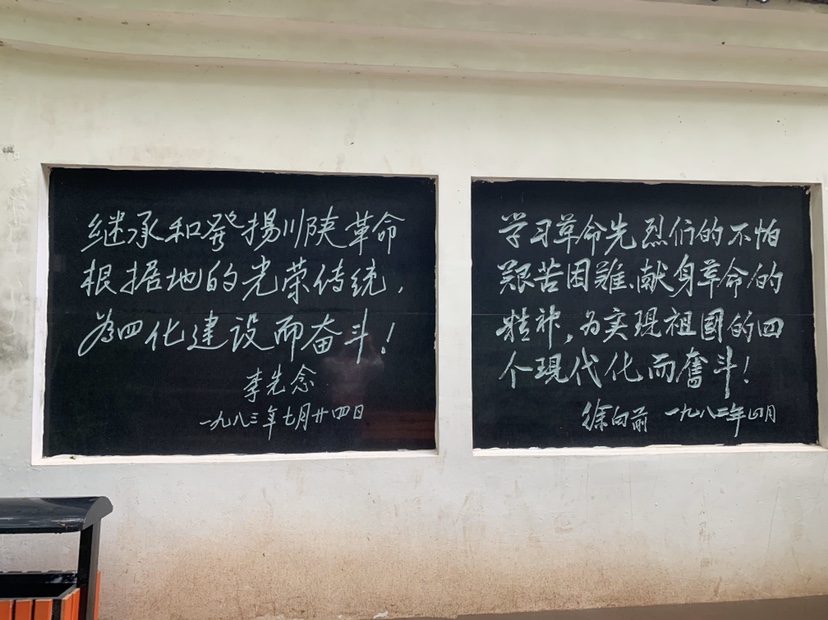 继承和發揚川陕革命
根据地的光荣传统，
为四化建设而奋斗！
李先念
一九八三年七月廿四日
学习革命先烈们的不怕
艰苦困难、献身革命的
精神，为实现祖國的四
个现代化而奮斗！
徐向前 一九八二年四月